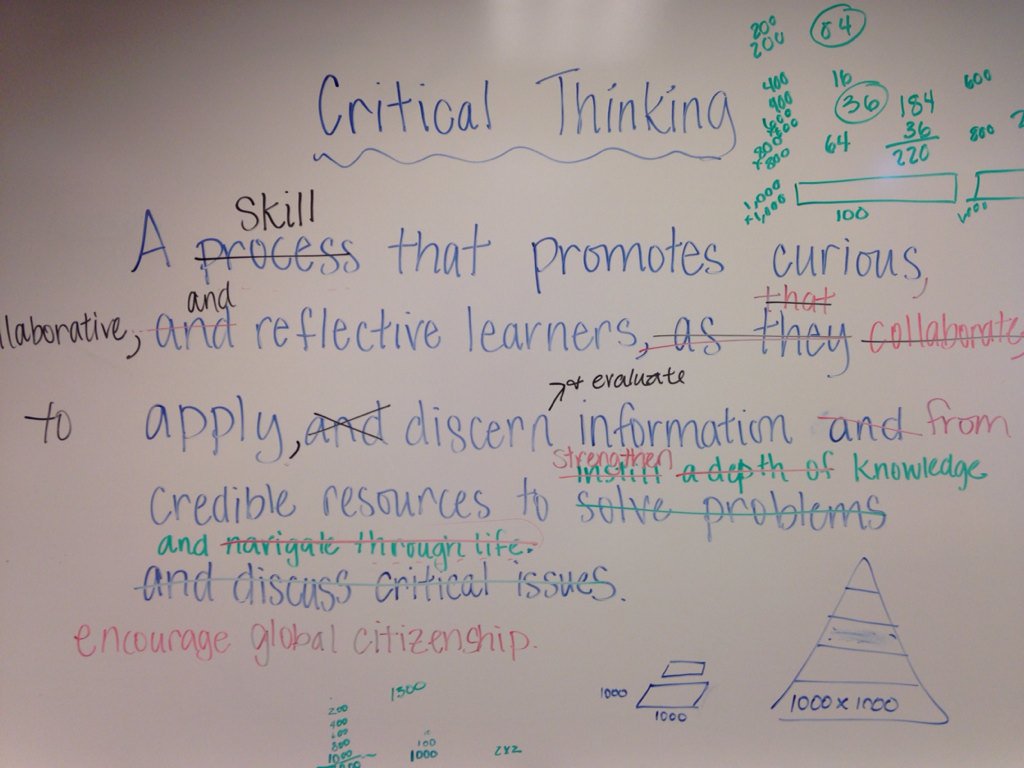 Critical Thinking
Skill
A process that promotes curious,
and that
llaborative, and reflective learners, as they collaborate,
or evaluate
to apply, and discern information and from
strengthen
instill a depth of knowledge
credible resources to solve problems
and navigate through life.
and discuss critical issues.
encourage global citizenship.
200 84
200
400 16 600
36 184
64 36 800
220
+800
1,000
+1,000
100
1000
1000
1000 x 1000
1300
200
400
600
800 100
1000 1000 282